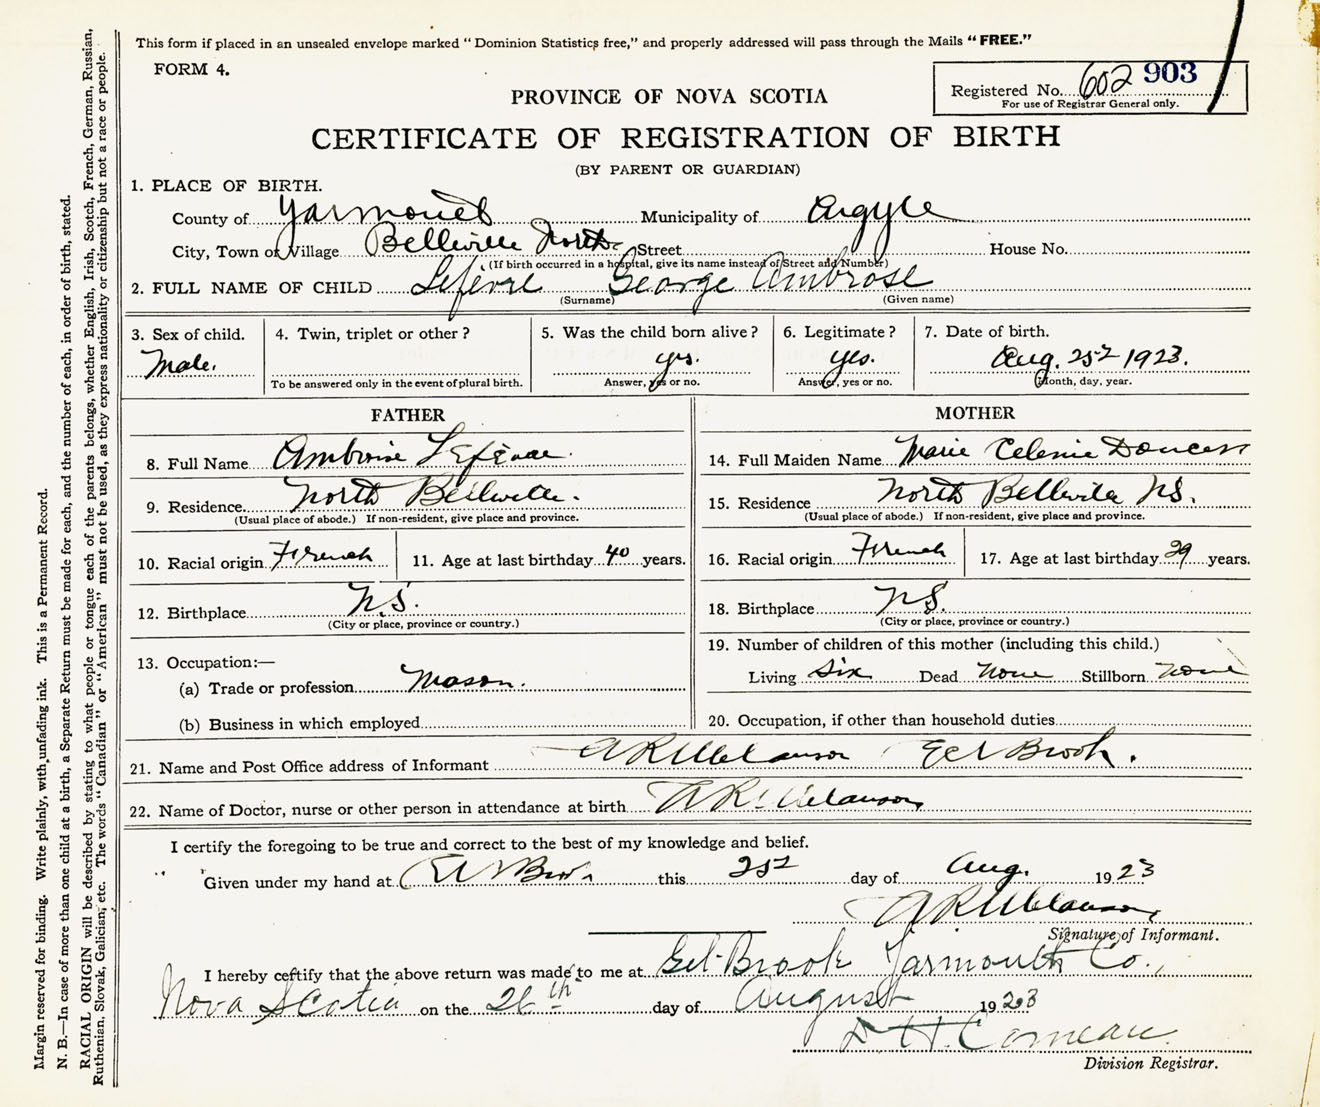 This form if placed in an unsealed envelope marked "Dominion Statistics free," and properly addressed will pass through the Mails "FREE."
FORM 4.
Registered No. 602 903
For use of Registrar General only.
PROVINCE OF NOVA SCOTIA
CERTIFICATE OF REGISTRATION OF BIRTH
(BY PARENT OR GUARDIAN)
1. PLACE OF BIRTH.
County of Yarmouth Municipality of Argyle
City, Town or Village Belleville North Street House No.
(If birth occurred in a hospital, give its name instead of Street and Number)
2. FULL NAME OF CHILD Lefèvre George Ambrose
(Surname) (Given name)
3. Sex of child. Male.
4. Twin, triplet or other?
To be answered only in the event of plural birth.
5. Was the child born alive? yes.
Answer, yes or no.
6. Legitimate? yes.
Answer, yes or no.
7. Date of birth. Aug. 25 1923.
Month, day, year.
FATHER
8. Full Name Ambroise
9. Residence North Belleville.
(Usual place of abode.) If non-resident, give place and province.
10. Racial origin French 11. Age at last birthday 40 years.
12. Birthplace N.S.
(City or place, province or country.)
13. Occupation:—
(a) Trade or profession Mason.
(b) Business in which employed
MOTHER
14. Full Maiden Name Marie Celenie
15. Residence North Belleville N.S.
(Usual place of abode.) If non-resident, give place and province.
16. Racial origin French 17. Age at last birthday 29 years.
18. Birthplace N.S.
(City or place, province or country.)
19. Number of children of this mother (including this child.)
Living Six Dead None Stillborn None
20. Occupation, if other than household duties
21. Name and Post Office address of Informant A R Melanson Eel Brook.
22. Name of Doctor, nurse or other person in attendance at birth A R Melanson
I certify the foregoing to be true and correct to the best of my knowledge and belief.
Given under my hand at Eel Brook this 25 day of Aug. 1923
A R Melanson
Signature of Informant.
I hereby certify that the above return was made to me at Eel-Brook Yarmouth Co.,
Nova Scotia on the 26th day of August 1923
D. H. Comeau
Division Registrar.
Margin reserved for binding. Write plainly, with unfading ink. This is a Permanent Record.
N. B.—In case of more than one child at a birth, a Separate Return must be made for each, and the number of each, in order of birth, stated.
RACIAL ORIGIN will be described by stating to what people or tongue each of the parents belongs, whether English, Irish, Scotch, French, German, Russian,
Ruthenian, Slovak, Galician, etc. The words "Canadian" or "American" must not be used, as they express nationality or citizenship but not a race or people.